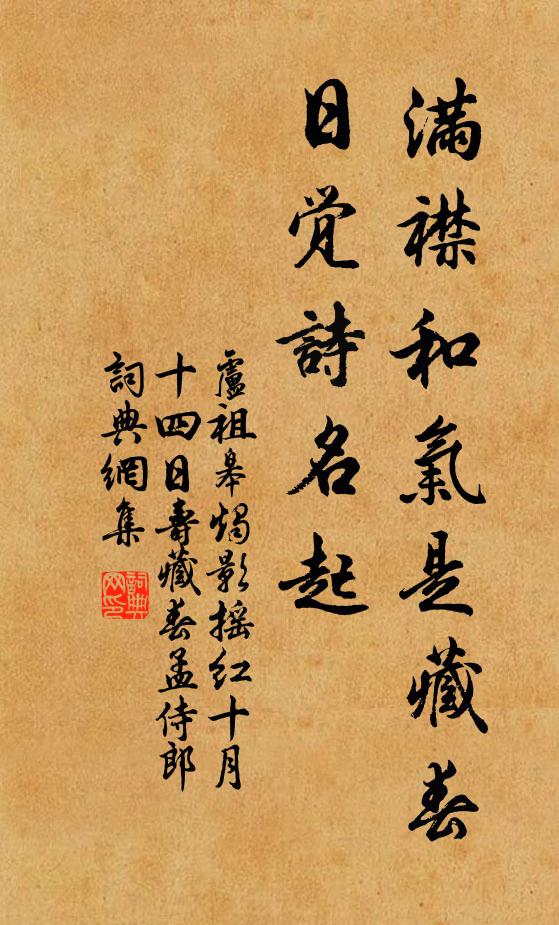 滿襟和氣是藏春
日覺詩名起
盧祖皋燭影摇红十月
十四日壽藏春孟侍郎
詞典網集
詞典
网印